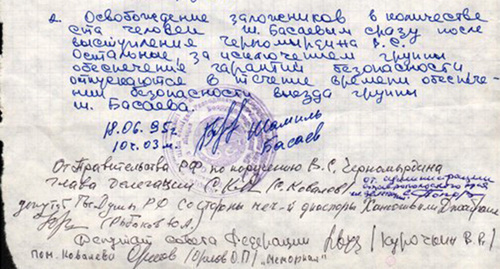 2. Освобождение заложников в количестве
ста человек ш. Басаевым сразу после
выступления Черномырдина В.С.
Остальные за исключением группы
обеспечения гарантий безопасности
отпускаются в течение времени обеспече-
ния безопасности выезда группы
ш. Басаева.
18.06.95г. Шамиль
10ч.03м. Басаев
От Правительства РФ по поручению В.С. Черномырдина
глава делегации (С. Ковалов)
от администрации
Ставропольского края
депутат Гос.Думы РФ со стороны чеч-й диаспоры
(Рыбаков Ю.А.)
Депутат Совета Федерации /Курочкин В.В./
пом. Ковалева Орлов (Орлов О.П.) "Мемориал"